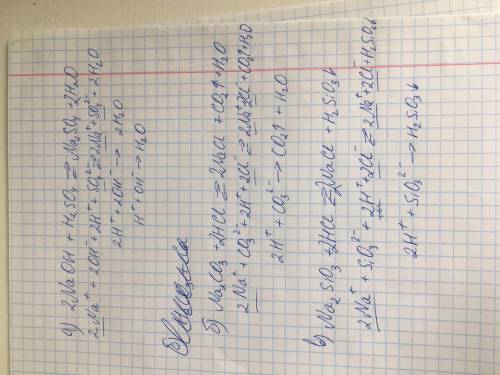 а) 2NaOH + H₂SO₄ ⇄ Na₂SO₄ + 2H₂O
2Na⁺ + 2OH⁻ + 2H⁺ + SO₄²⁻ ⇄ 2Na⁺ + SO₄²⁻ + 2H₂O
2H⁺ + 2OH⁻ → 2H₂O
H⁺ + OH⁻ → H₂O
б) Na₂CO₃ + 2HCl ⇄ 2NaCl + CO₂↑ + H₂O
2Na⁺ + CO₃²⁻ + 2H⁺ + 2Cl⁻ ⇄ 2Na⁺ + 2Cl⁻ + CO₂↑ + H₂O
2H⁺ + CO₃²⁻ → CO₂↑ + H₂O
в) Na₂SiO₃ + 2HCl ⇄ 2NaCl + H₂SiO₃↓
2Na⁺ + SiO₃²⁻ + 2H⁺ + 2Cl⁻ ⇄ 2Na⁺ + 2Cl⁻ + H₂SiO₃↓
2H⁺ + SiO₃²⁻ → H₂SiO₃↓